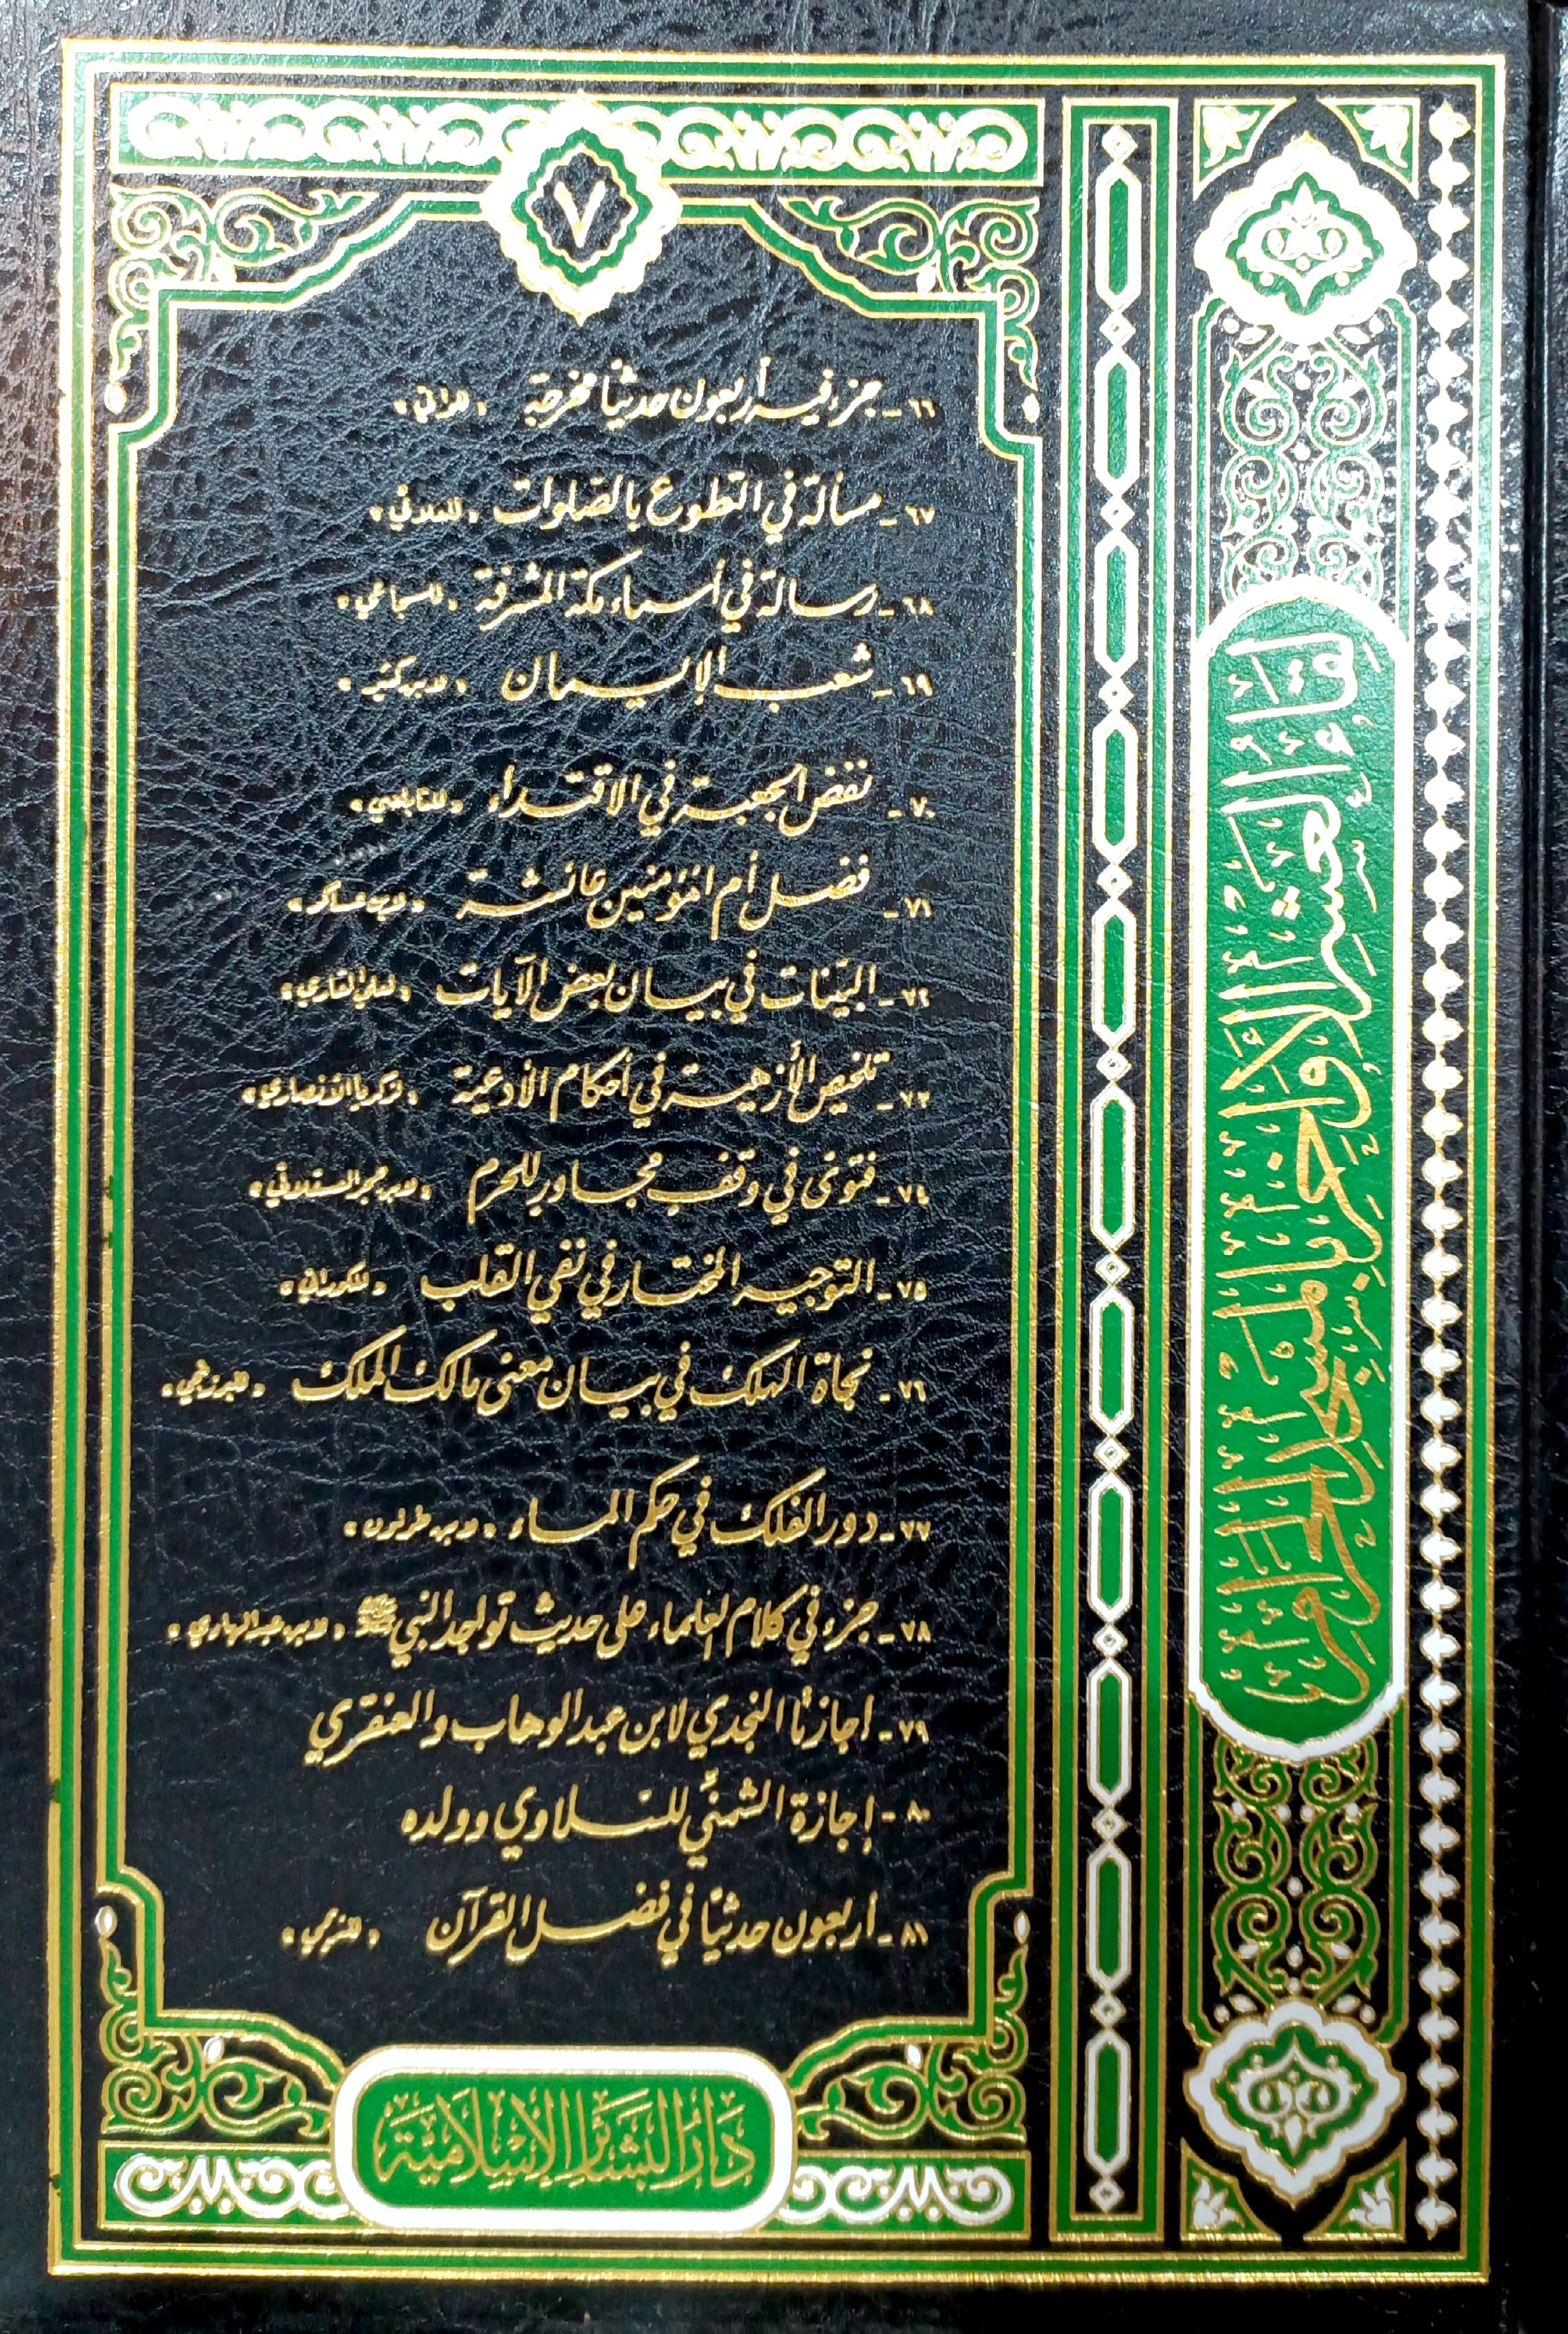 ٧
٦٦ـ جزء فيه أربعون حديثًا مخرجة «للعراقي»
٦٧ـ مسألة في التطوع بالصلوات «للعلائي»
٦٨ـ رسالة في أسماء مكة المشرفة «للسجاعي»
٦٩ـ شعب الإيمان «لابن كثير»
٧٠ـ نقض الجعبة في الاقتداء «للنابلسي»
٧١ـ فضل أم المؤمنين عائشة «لابن عساكر»
٧٢ـ البيّنات في بيان بعض الآيات «لعلي القاري»
٧٣ـ تلخيص الأزهية في أحكام الأدعية «لزكريا الأنصاري»
٧٤ـ فتوى في وقف مجاور للحرم «لابن حجر العسقلاني»
٧٥ـ التوجيه المختار في نفي القلب «للكوراني»
٧٦ـ نجاة الهلك في بيان معنى مالك الملك «للبرزنجي»
٧٧ـ دور الفلك في حكم الماء «لابن طولون»
٧٨ـ جزء في كلام العلماء على حديث تواجد النبي ﷺ «لابن عبد الهادي»
٧٩ـ إجازتا النجدي لابن عبد الوهاب والعنقري
٨٠ـ إجازة الشمنّي للتلاوي وولده
٨١ـ أربعون حديثًا في فضل القرآن
دَارُ البَشَائِرِ الإِسْلَامِيَّة
لِقَاءُ العَشْرِ الأَوَاخِرِ بِالمَسْجِدِ الحَرَامِ